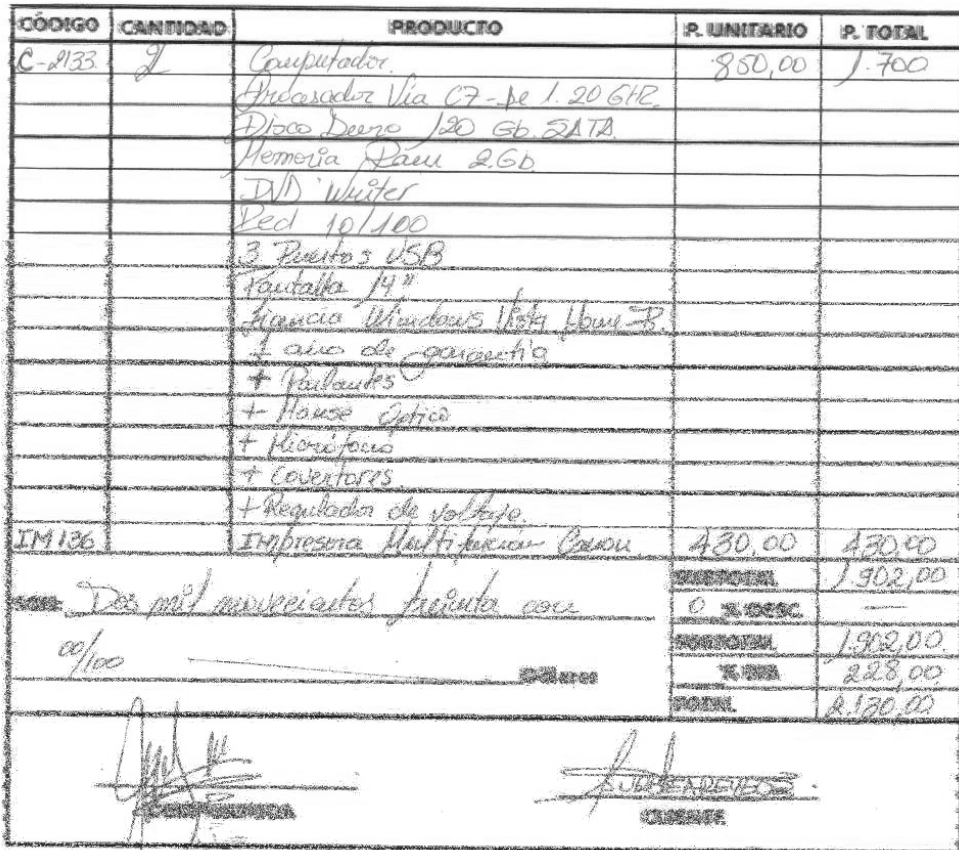 CÓDIGO CANTIDAD PRODUCTO P. UNITARIO P. TOTAL
C-2133 2 Computador 850,00 1.700
Procesador Via C7- de 1.20 GHZ.
Disco Duro 120 Gb. SATA
Memoria Ram 2.Gb
DVD Writer
Red 10/100
3 Puertos USB
Pantalla 14"
Licencia Windows Vista Home-B.
1 año de garantia
+ Parlantes
+ Mouse Optico
+ Microfono
+ Covertores
+ Regulador de voltaje.
IM136 Impresora Multifuncion Canon 430,00 430,00
SUBTOTAL 1.902,00
SON: Dos mil novecientos treinta con 0 % DESC. —
SUBTOTAL 1.902,00
00/100 Dólares % IVA 228,00
TOTAL 2.130,00
CLIENTE